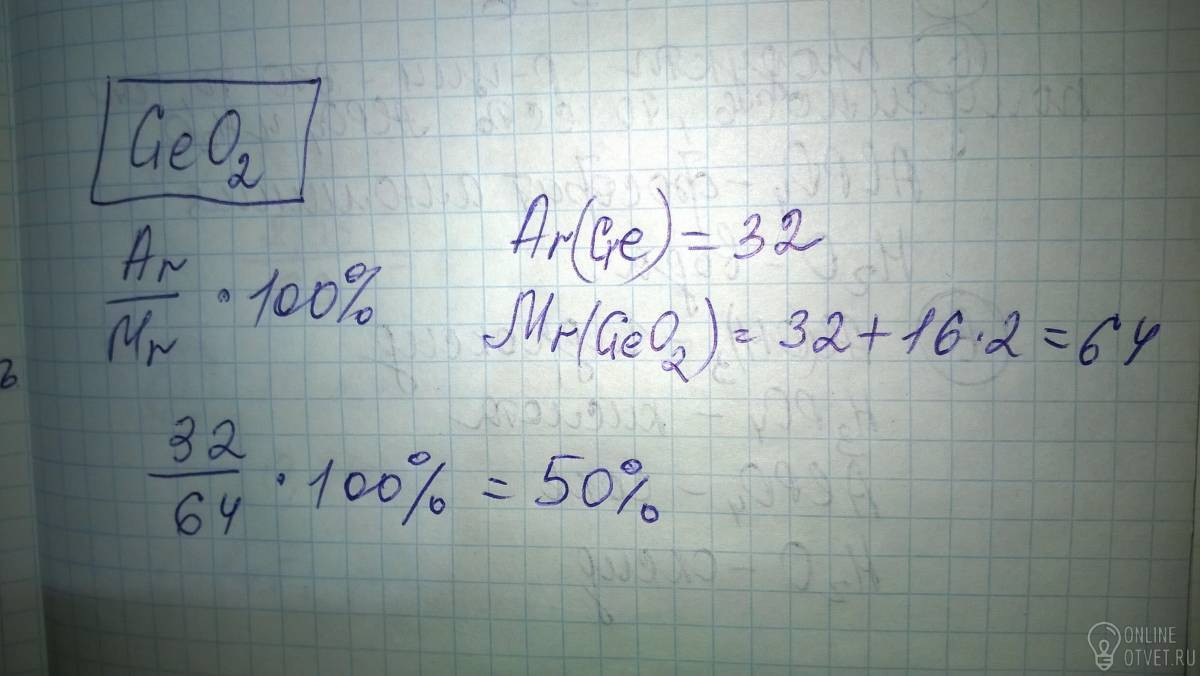 GeO₂
Ar/Mr · 100%
Ar(Ge) = 32
Mr(GeO₂) = 32 + 16 · 2 = 64
32/64 · 100% = 50%
ONLINE
OTVET.RU